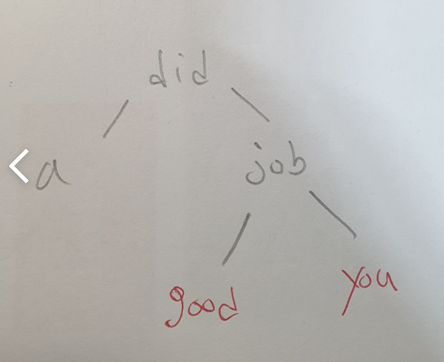 did
a job
good you